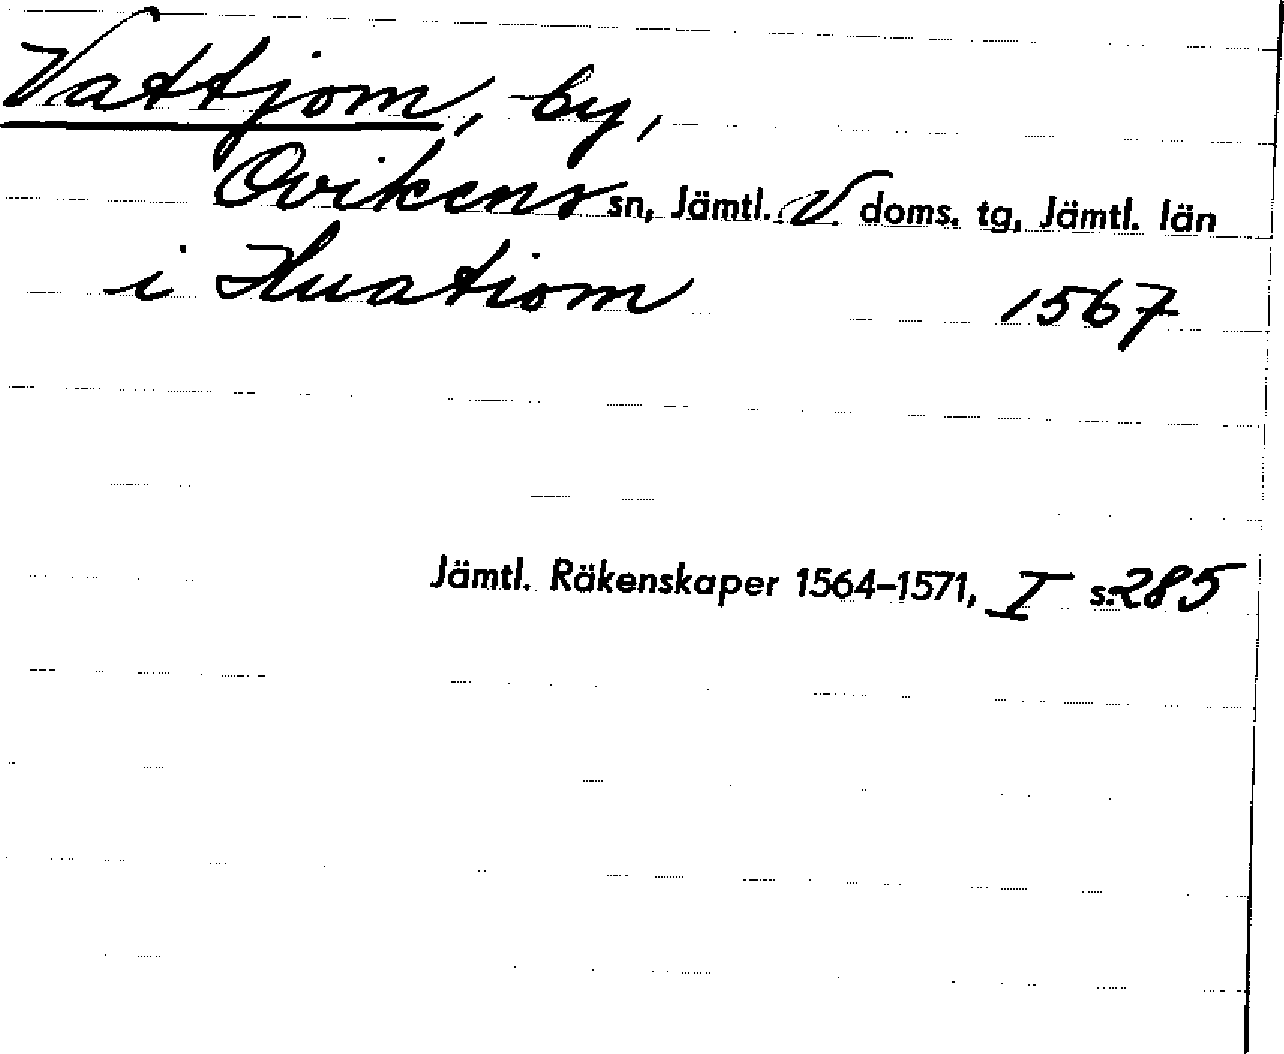 Vattjom, by,
Ovikens sn, Jämtl. V. doms. tg, Jämtl. län
i Huatiom 1567
Jämtl. Räkenskaper 1564–1571, I s. 285